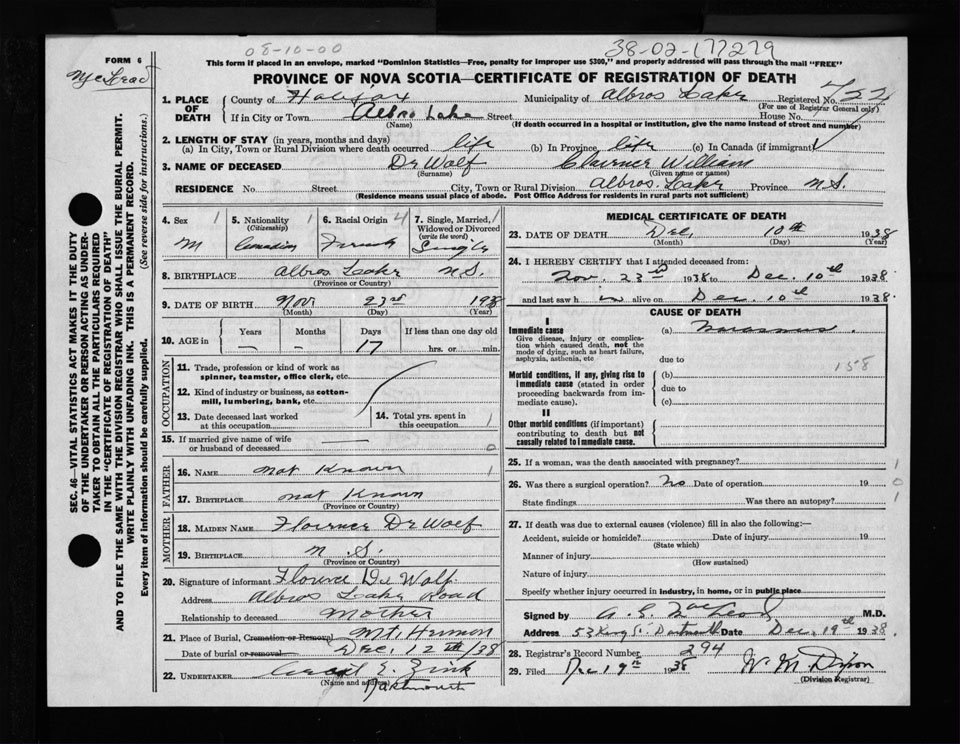 08-10-00
38-02-177279
FORM 6
This form if placed in an envelope, marked "Dominion Statistics—Free, penalty for improper use $300," and properly addressed will pass through the mail "FREE"
PROVINCE OF NOVA SCOTIA—CERTIFICATE OF REGISTRATION OF DEATH
SEC. 46—VITAL STATISTICS ACT MAKES IT THE DUTY
OF THE UNDERTAKER OR PERSON ACTING AS UNDER-
TAKER TO OBTAIN ALL THE PARTICULARS REQUIRED
IN THE "CERTIFICATE OF REGISTRATION OF DEATH"
AND TO FILE THE SAME WITH THE DIVISION REGISTRAR WHO SHALL ISSUE THE BURIAL PERMIT.
WRITE PLAINLY WITH UNFADING INK. THIS IS A PERMANENT RECORD.
Every item of information should be carefully supplied. (See reverse side for instructions.)
1. PLACE OF DEATH County of Halifax Municipality of Albros Lake Registered No.
(For use of Registrar General only)
If in City or Town Albro Lake Street House No.
(Name) (If death occurred in a hospital or institution, give the name instead of street and number)
2. LENGTH OF STAY (in years, months and days)
(a) In City, Town or Rural Division where death occurred life (b) In Province life (c) In Canada (if immigrant)
3. NAME OF DECEASED De Wolf William
(Surname) (Given name or names)
RESIDENCE No Street City, Town or Rural Division Albros Lake Province N.S.
(Residence means usual place of abode. Post Office Address for residents in rural parts not sufficient)
4. Sex 1 5. Nationality 1 6. Racial Origin 4 7. Single, Married, 1
(Citizenship) Widowed or Divorced
(write the word)
M Canadian French Single
8. BIRTHPLACE Albros Lake N.S.
(Province or Country)
9. DATE OF BIRTH Nov 23rd 1938
(Month) (Day) (Year)
10. AGE in Years Months Days If less than one day old
— — 17 hrs. or min.
OCCUPATION
11. Trade, profession or kind of work as
spinner, teamster, office clerk, etc.
12. Kind of industry or business, as cotton-
mill, lumbering, bank, etc.
13. Date deceased last worked 14. Total yrs. spent in
at this occupation this occupation 1
15. If married give name of wife
or husband of deceased 0
FATHER
16. NAME Not Known 1
17. BIRTHPLACE Not Known
(Province or Country)
MOTHER
18. MAIDEN NAME Florence De Wolf
19. BIRTHPLACE N.S.
(Province or Country)
20. Signature of informant Florence De Wolf
Address Albros Lake Road
Relationship to deceased Mother
21. Place of Burial, Cremation or Removal Mt. Hermon
Date of burial or removal Dec. 12th/38
22. UNDERTAKER E. Zink
(Name and address) Dartmouth
MEDICAL CERTIFICATE OF DEATH
23. DATE OF DEATH Dec. 10th 1938
(Month) (Day) (Year)
24. I HEREBY CERTIFY that I attended deceased from:
Nov. 23rd 1938 to Dec. 10th 1938
and last saw h im alive on Dec. 10th 1938.
CAUSE OF DEATH
I
Immediate cause (a) Marasmus.
Give disease, injury or complica-
tion which caused death, not the
mode of dying, such as heart failure,
asphyxia, asthenia, etc
due to
158
Morbid conditions, if any, giving rise to (b)
immediate cause (stated in order due to
proceeding backwards from im- (c)
mediate cause).
II
Other morbid conditions (if important)
contributing to death but not
causally related to immediate cause.
25. If a woman, was the death associated with pregnancy? 1
26. Was there a surgical operation? No Date of operation 19 0
State findings Was there an autopsy? 1
27. If death was due to external causes (violence) fill in also the following:—
Accident, suicide or homicide? Date of injury 19
(State which)
Manner of injury
(How sustained)
Nature of injury
Specify whether injury occurred in industry, in home, or in public place
Signed by A. G. MacLeod M.D.
Address 53 King St. Dartmouth Date Dec. 19th 1938.
28. Registrar's Record Number 294
29. Filed Dec 19th 1938 W M Dixon
(Division Registrar)